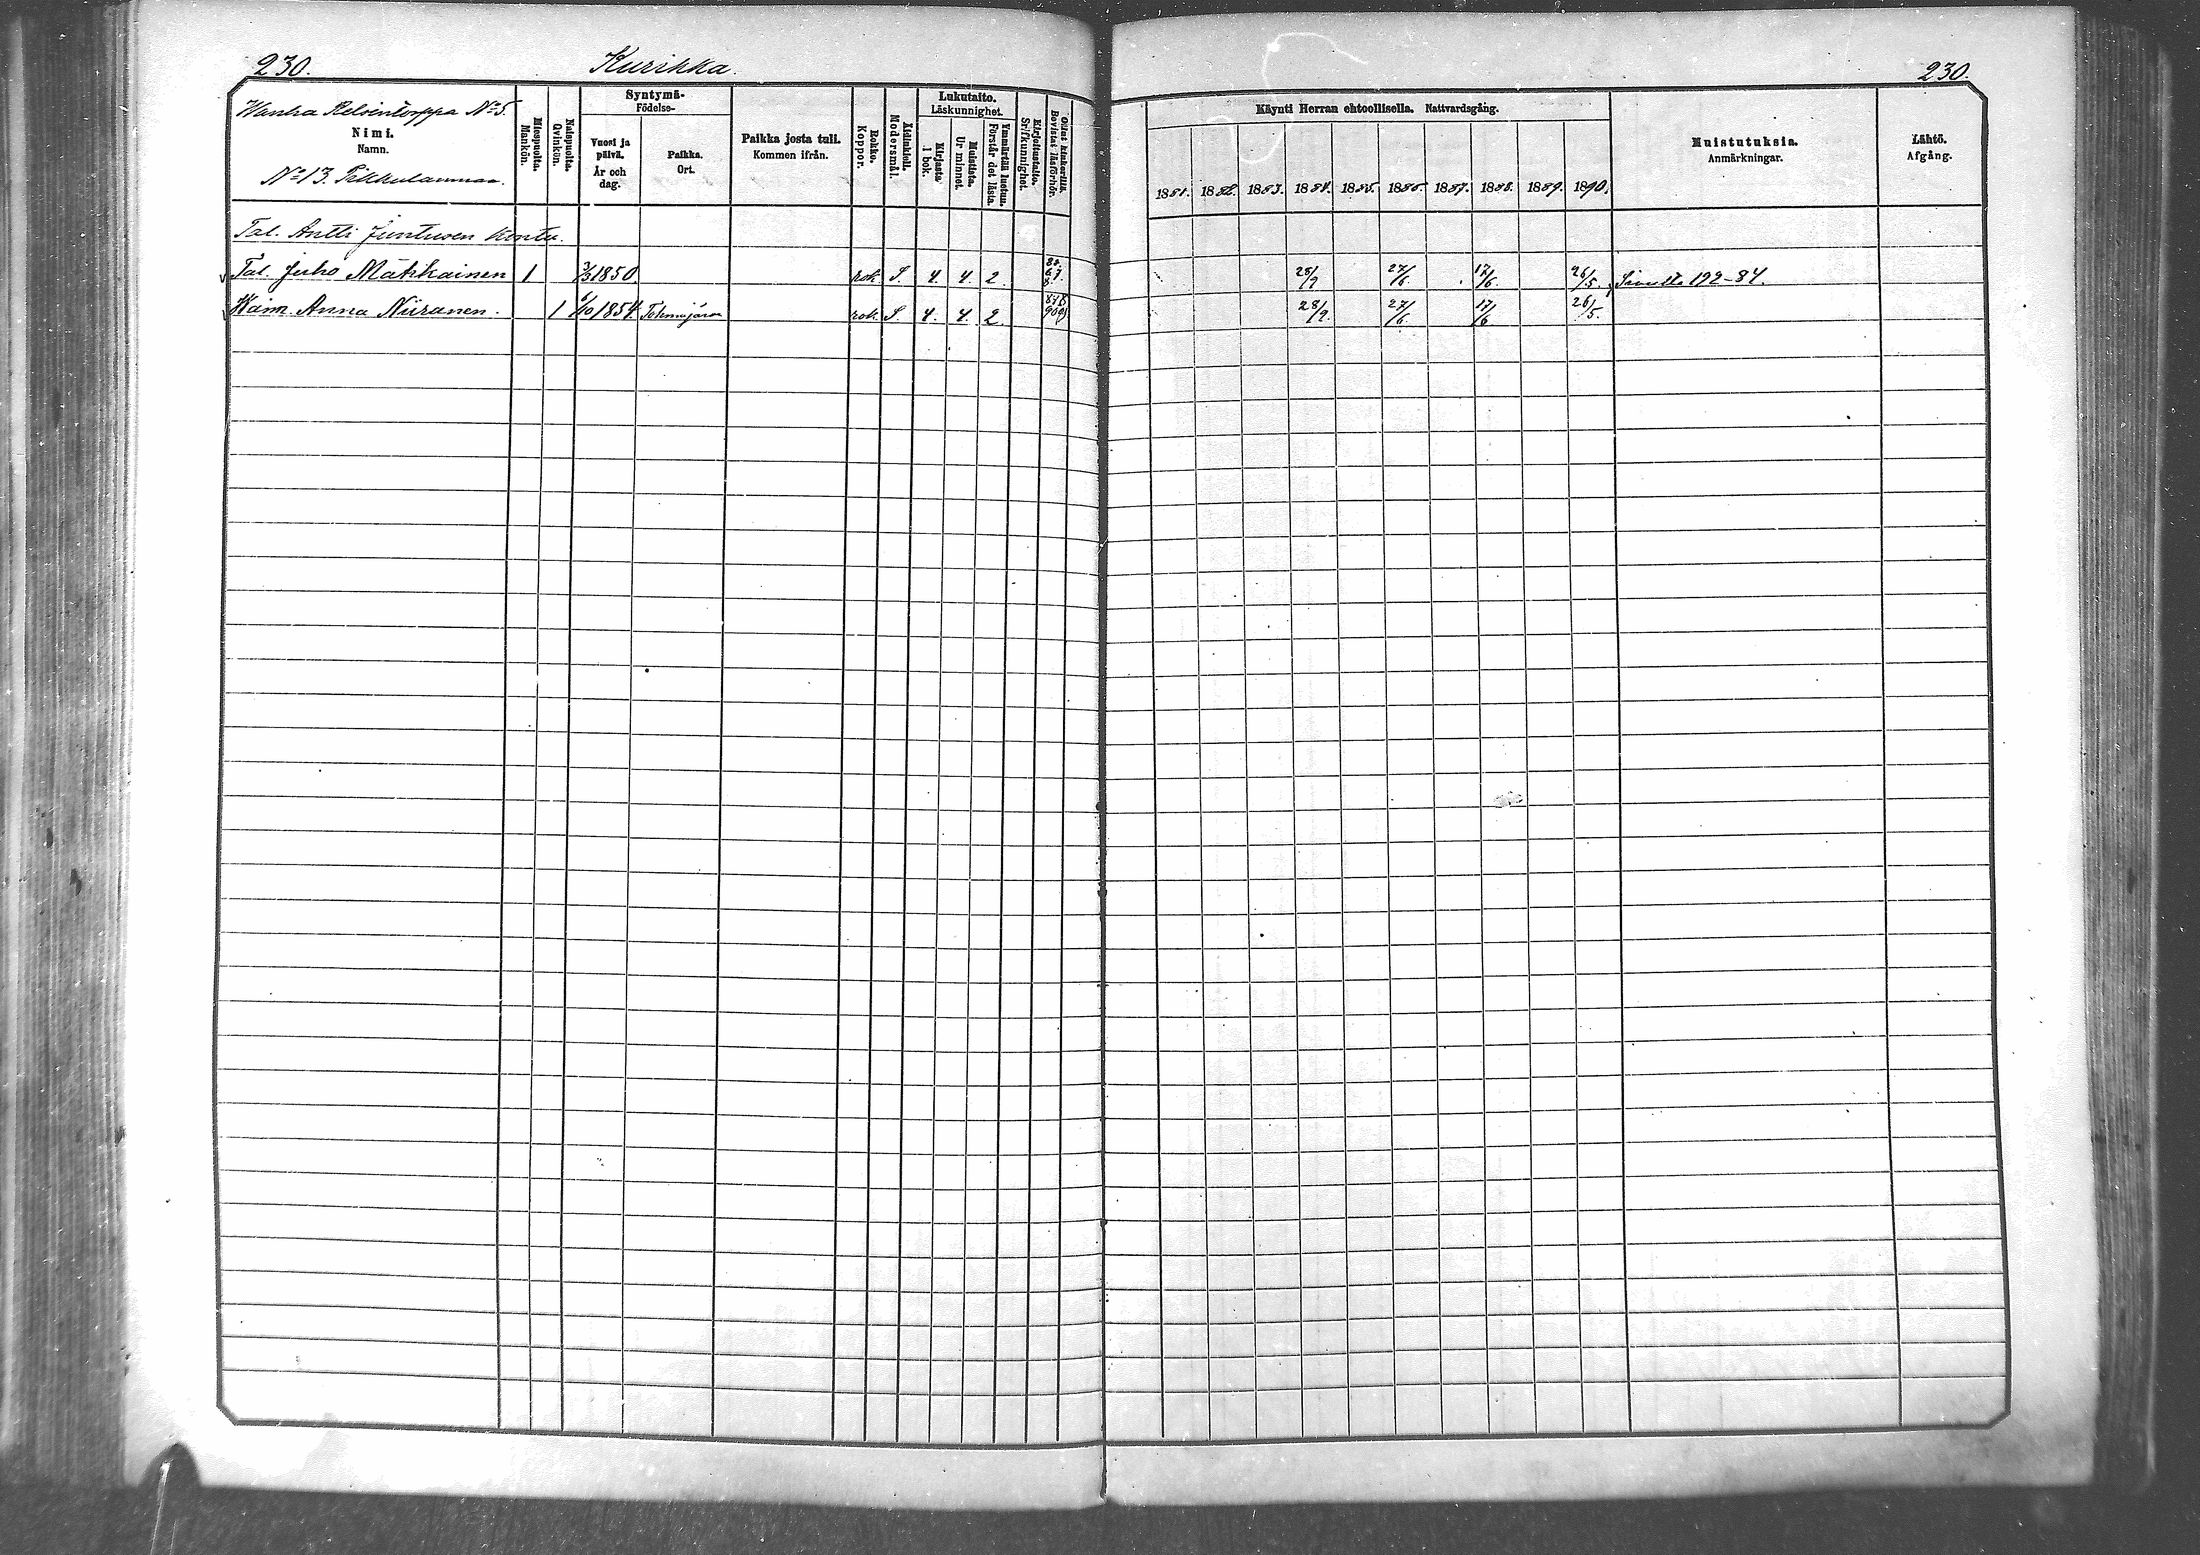 230. Kurikka. 230.
Wanha Relointorppa No 5.
Nimi.
Namn.
No 13. Pikkulammas.
Miespuolta.
Mankön.
Naispuolta.
Qvinkön.
Syntymä-
Födelse-
Vuosi ja päivä.
År och dag.
Paikka.
Ort.
Paikka josta tuli.
Kommen ifrån.
Rokko.
Koppor.
Äidinkieli.
Modersmål.
Lukutaito.
Läskunnighet.
Kirjasta.
I bok.
Muistista.
Ur minnet.
Ymmärtää luetun.
Förstår det lästa.
Kirjoitustaito.
Srifkunnighet.
Ollut kinkerillä.
Bevistat läsförhör.
Käynti Herran ehtoollisella. Nattvardsgång.
1881. 1882. 1883. 1884. 1885. 1886. 1887. 1888. 1889. 1890.
Muistutuksia.
Anmärkningar.
Lähtö.
Afgång.
Tal. Antti Juntusen kontu.
Tal. Juho Mätikainen 1 3/3 1850. rok. S. 4. 4. 2. 28/9 27/6 17/6. 26/5. Sivulta 192-84.
Waim. Anna Niiranen. 1 6/10 1854 Tohmajärvi rok. S. 4. 4. 2 28/9. 27/6. 17/6 26/5.